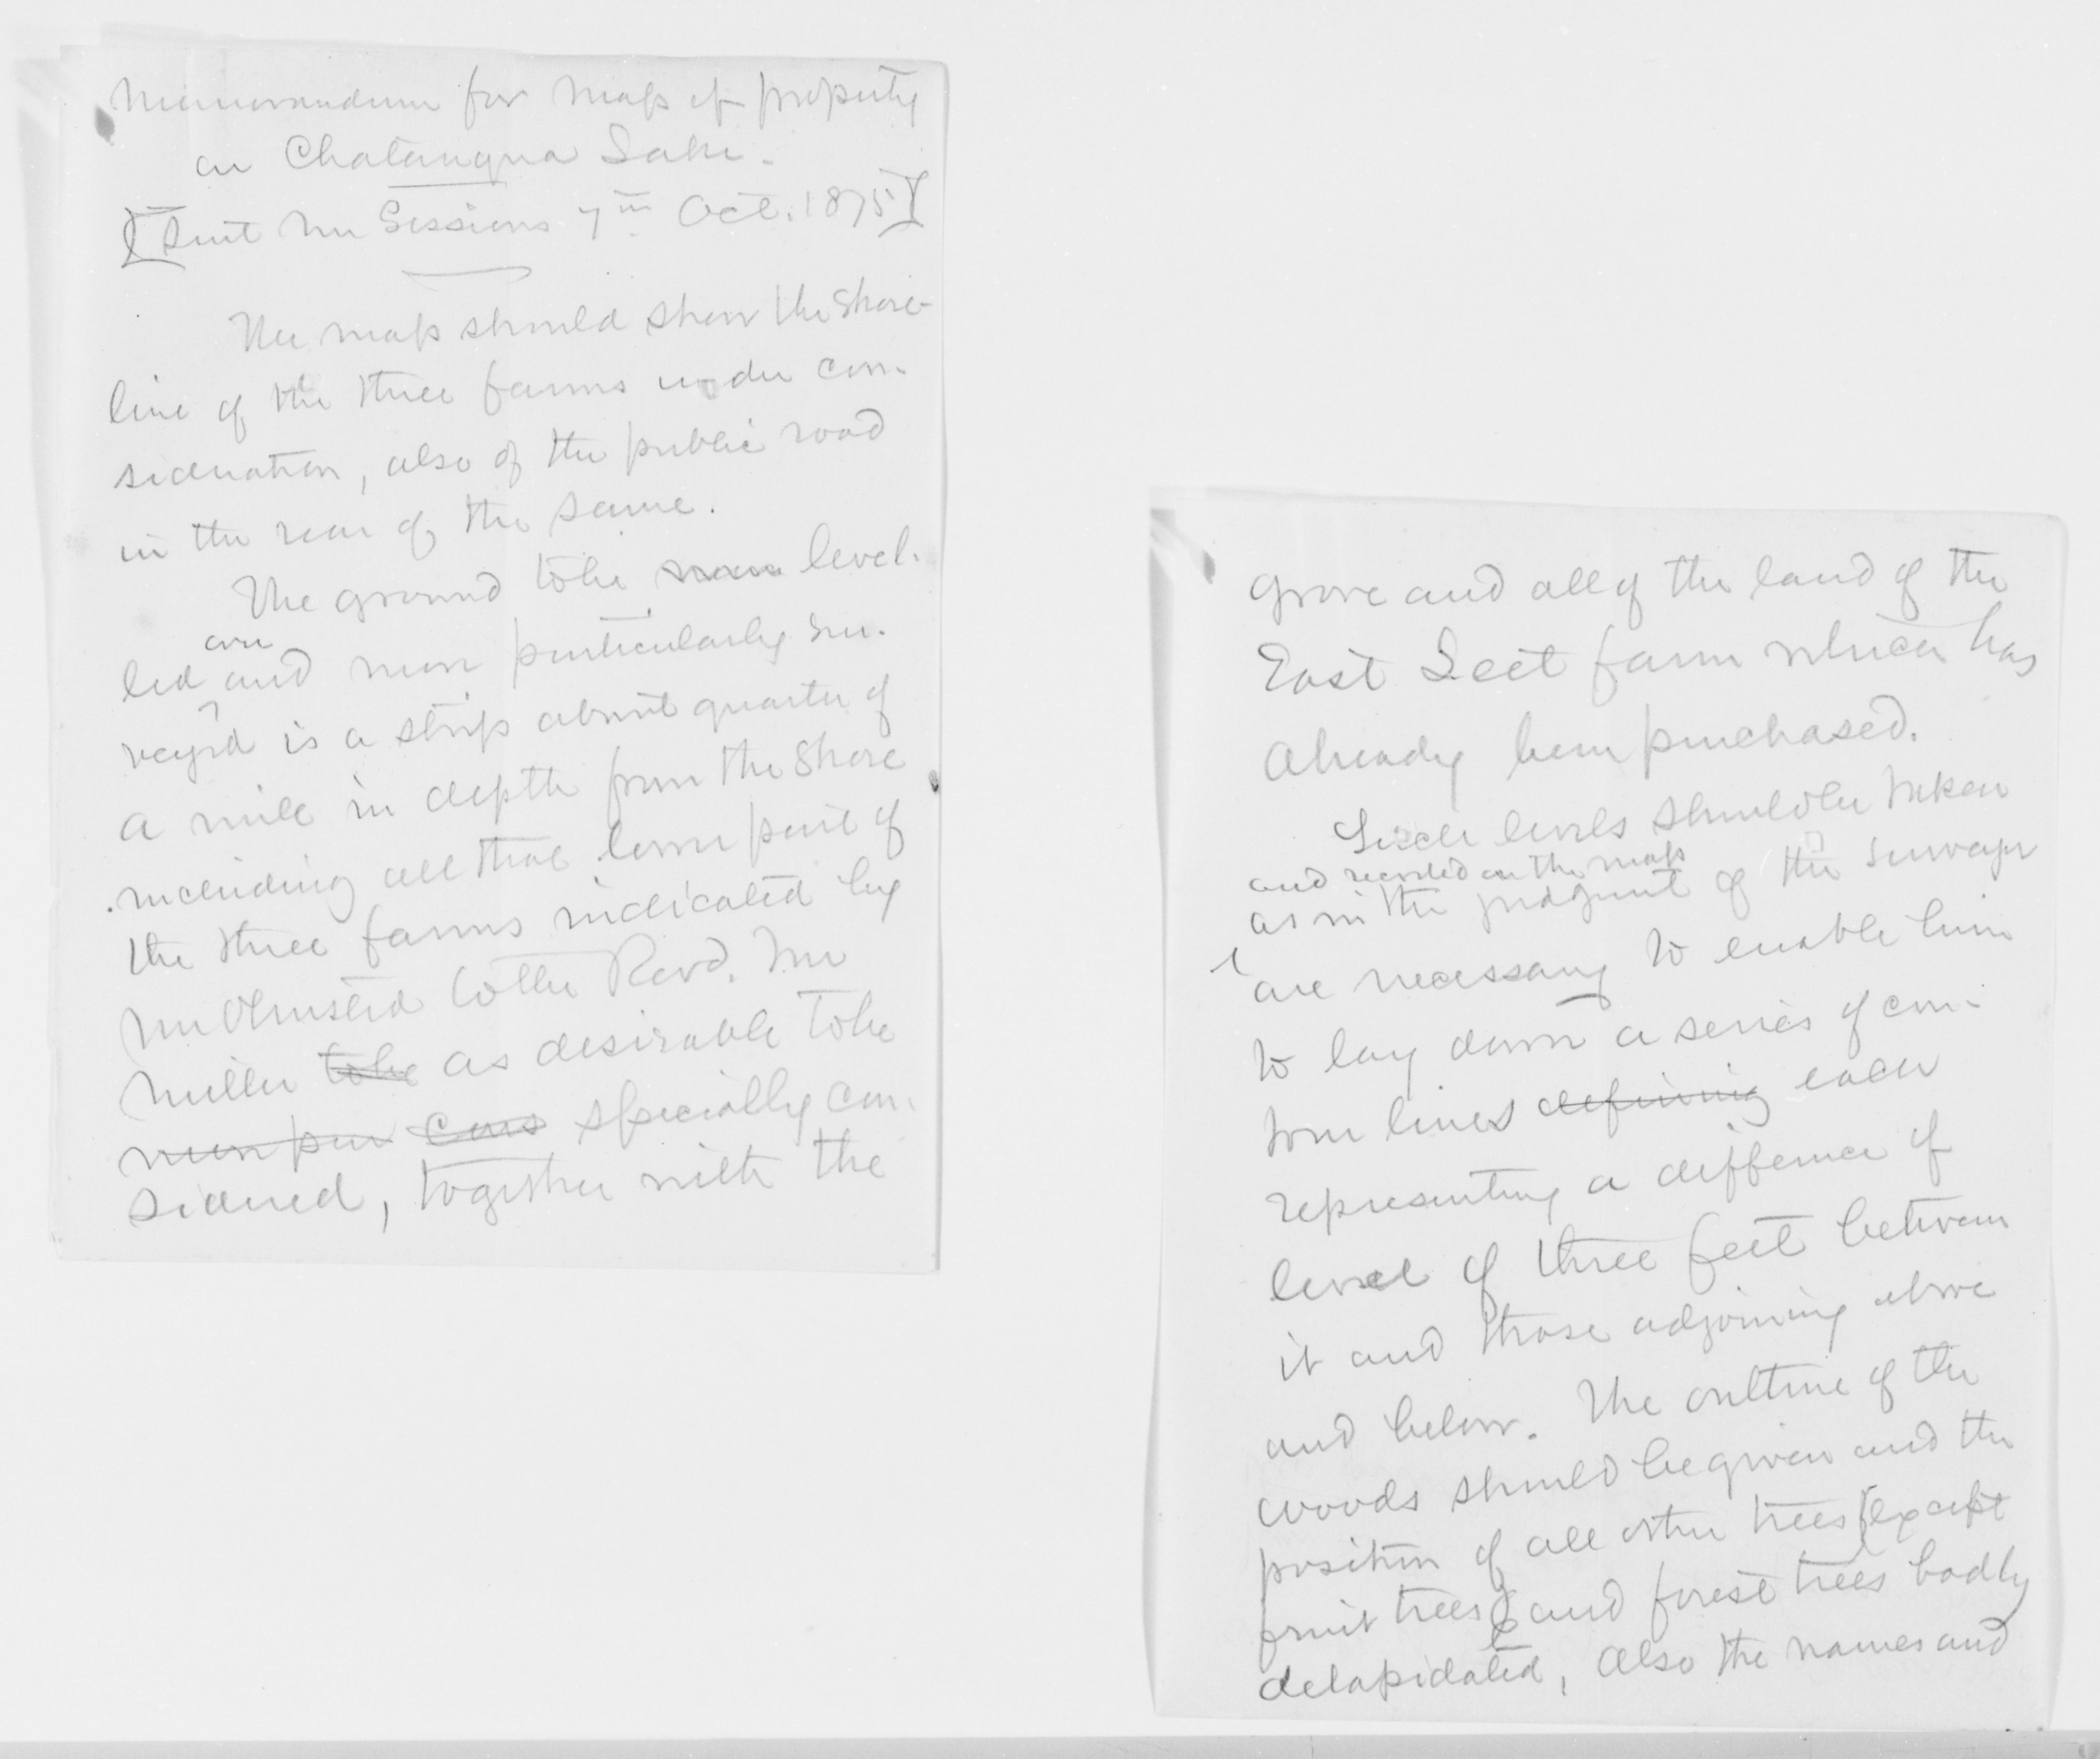 Memorandum for map of property
on Chatauqua Lake.
[Sent Mr Sessions 7th Oct. 1875]
The map should show the shore-
line of the three farms under con-
sideration, also of the public road
in the rear of the same.
The ground to be level-
led over and more particularly sur-
veyed is a strip about quarter of
a mile in depth from the shore
including all that lower part of
the three farms indicated by
Mr Olmsted to the Revd. Mr
Miller to be as desirable to be
more par Cons specially con-
sidered, together with the
grove and all of the land of the
East Leet farm which has
already been purchased.
Such levels should be taken
and recorded on the map
as in the judgment of the surveyor
are necessary to enable him
to lay down a series of con-
tour lines defining each
representing a difference of
level of three feet between
it and those adjoining above
and below. The outline of the
woods should be given and the
position of all other trees (except
fruit trees) and forest trees badly
delapidated, also the names and